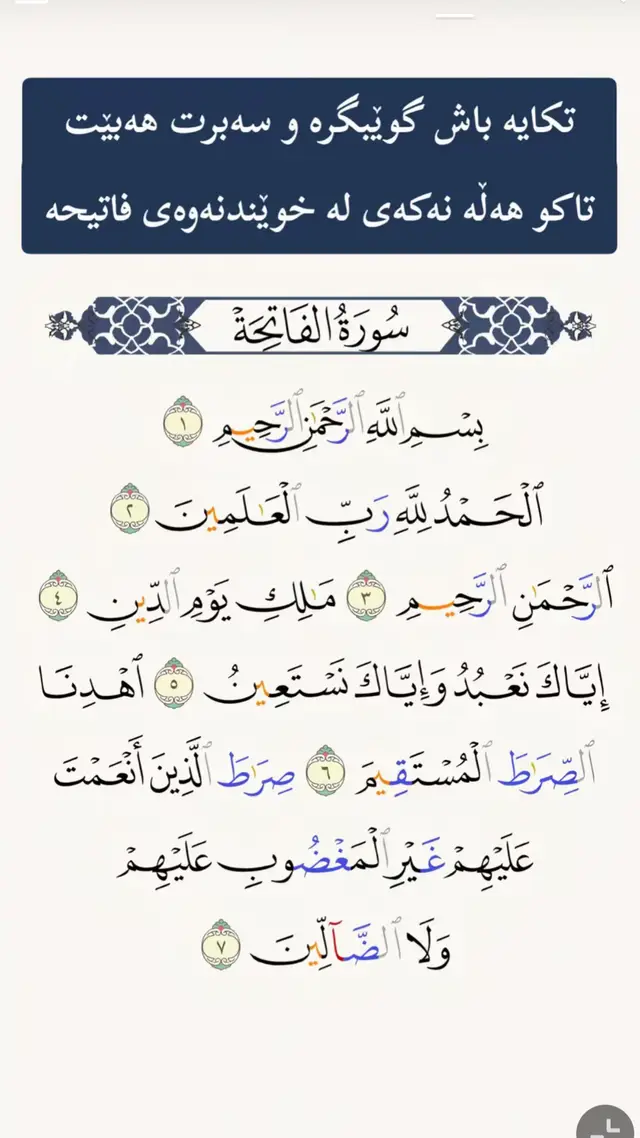 تکایە باش گوێبگرە و سەبرت هەبێت
تاکو هەڵە نەکەی لە خوێندنەوەی فاتیحە
سُورَةُ الفَاتِحَةِ
بِسْمِ ٱللَّهِ ٱلرَّحْمَٰنِ ٱلرَّحِيمِ ١
ٱلْحَمْدُ لِلَّهِ رَبِّ ٱلْعَٰلَمِينَ ٢
ٱلرَّحْمَٰنِ ٱلرَّحِيمِ ٣ مَٰلِكِ يَوْمِ ٱلدِّينِ ٤
إِيَّاكَ نَعْبُدُ وَإِيَّاكَ نَسْتَعِينُ ٥ ٱهْدِنَا
ٱلصِّرَٰطَ ٱلْمُسْتَقِيمَ ٦ صِرَٰطَ ٱلَّذِينَ أَنْعَمْتَ
عَلَيْهِمْ غَيْرِ ٱلْمَغْضُوبِ عَلَيْهِمْ
وَلَا ٱلضَّآلِّينَ ٧